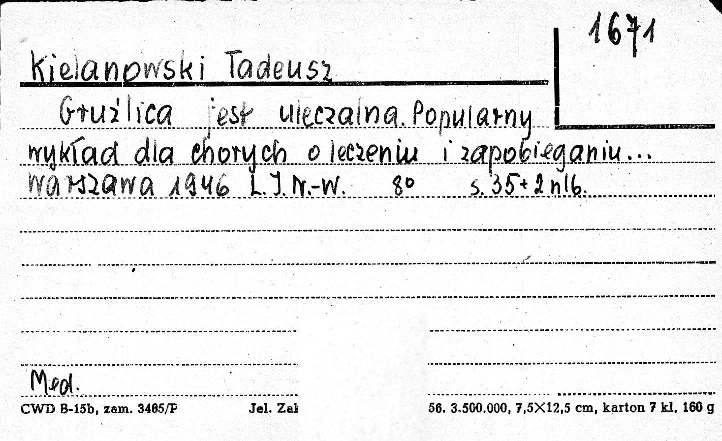 1671
Kielanowski Tadeusz
Gruźlica jest uleczalna. Popularny
wykład dla chorych o leczeniu i zapobieganiu...
Warszawa 1946 L.I.N.-W. 8° s. 35+2 nlb.
Med.
CWD B-15b, zam. 3485/P Jel. Zak 56. 3.500.000, 7,5×12,5 cm, karton 7 kl. 160 g